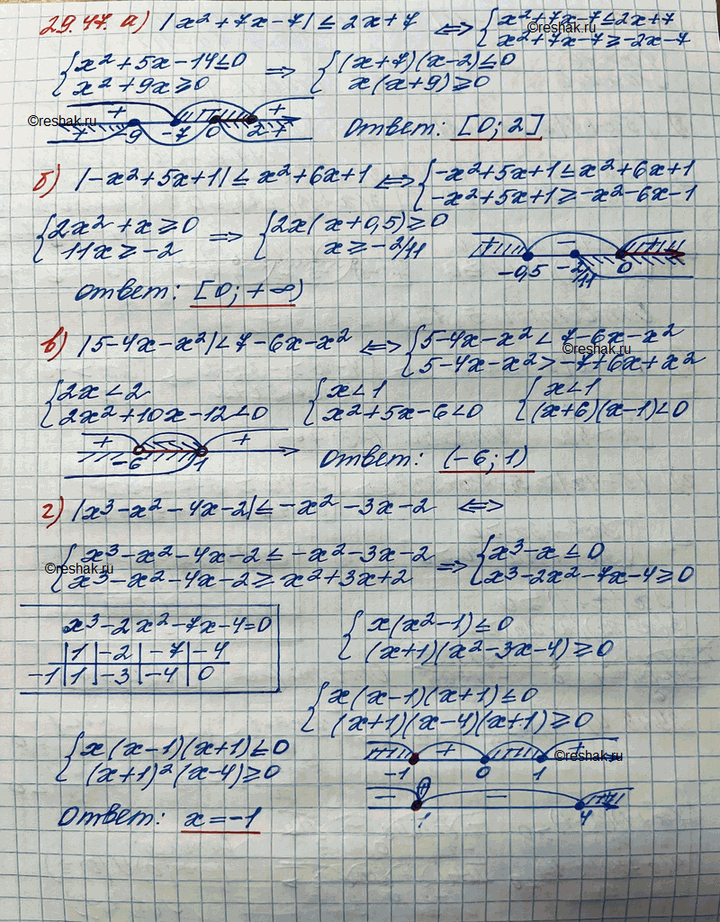 29.47. а) |x²+7x-7| ≤ 2x+7 ⟺ {x²+7x-7≤2x+7
x²+7x-7≥-2x-7
{x²+5x-14≤0 ⟹ {(x+7)(x-2)≤0
x²+9x≥0 x(x+9)≥0
©reshak.ru
+ +
+ -9 -7 0 2 +
Ответ: [0; 2]
б) |-x²+5x+1| ≤ x²+6x+1 ⟺ {-x²+5x+1≤x²+6x+1
-x²+5x+1≥-x²-6x-1
{2x²+x≥0 ⟹ {2x(x+0,5)≥0
11x≥-2 x≥-2/11
+ - +
-0,5 -2/11 0
Ответ: [0; +∞)
в) |5-4x-x²|<7-6x-x² ⟺ {5-4x-x²<7-6x-x²
©reshak.ru
5-4x-x²>-7+6x+x²
{2x<2 {x<1 {x<1
2x²+10x-12<0 x²+5x-6<0 (x+6)(x-1)<0
+ - +
-6 1
Ответ: (-6; 1)
г) |x³-x²-4x-2|≤-x²-3x-2 ⟺
{x³-x²-4x-2≤-x²-3x-2 ⟹ {x³-x≤0
©reshak.ru
x³-x²-4x-2≥x²+3x+2 x³-2x²-7x-4≥0
x³-2x²-7x-4=0
|1|-2|-7|-4
-1|1|-3|-4|0
{x(x²-1)≤0
(x+1)(x²-3x-4)≥0
{x(x-1)(x+1)≤0
(x+1)(x-4)(x+1)≥0
{x(x-1)(x+1)≤0
(x+1)²(x-4)≥0
+ +
-1 0 1
©reshak.ru
- - +
1 4
Ответ: x=-1